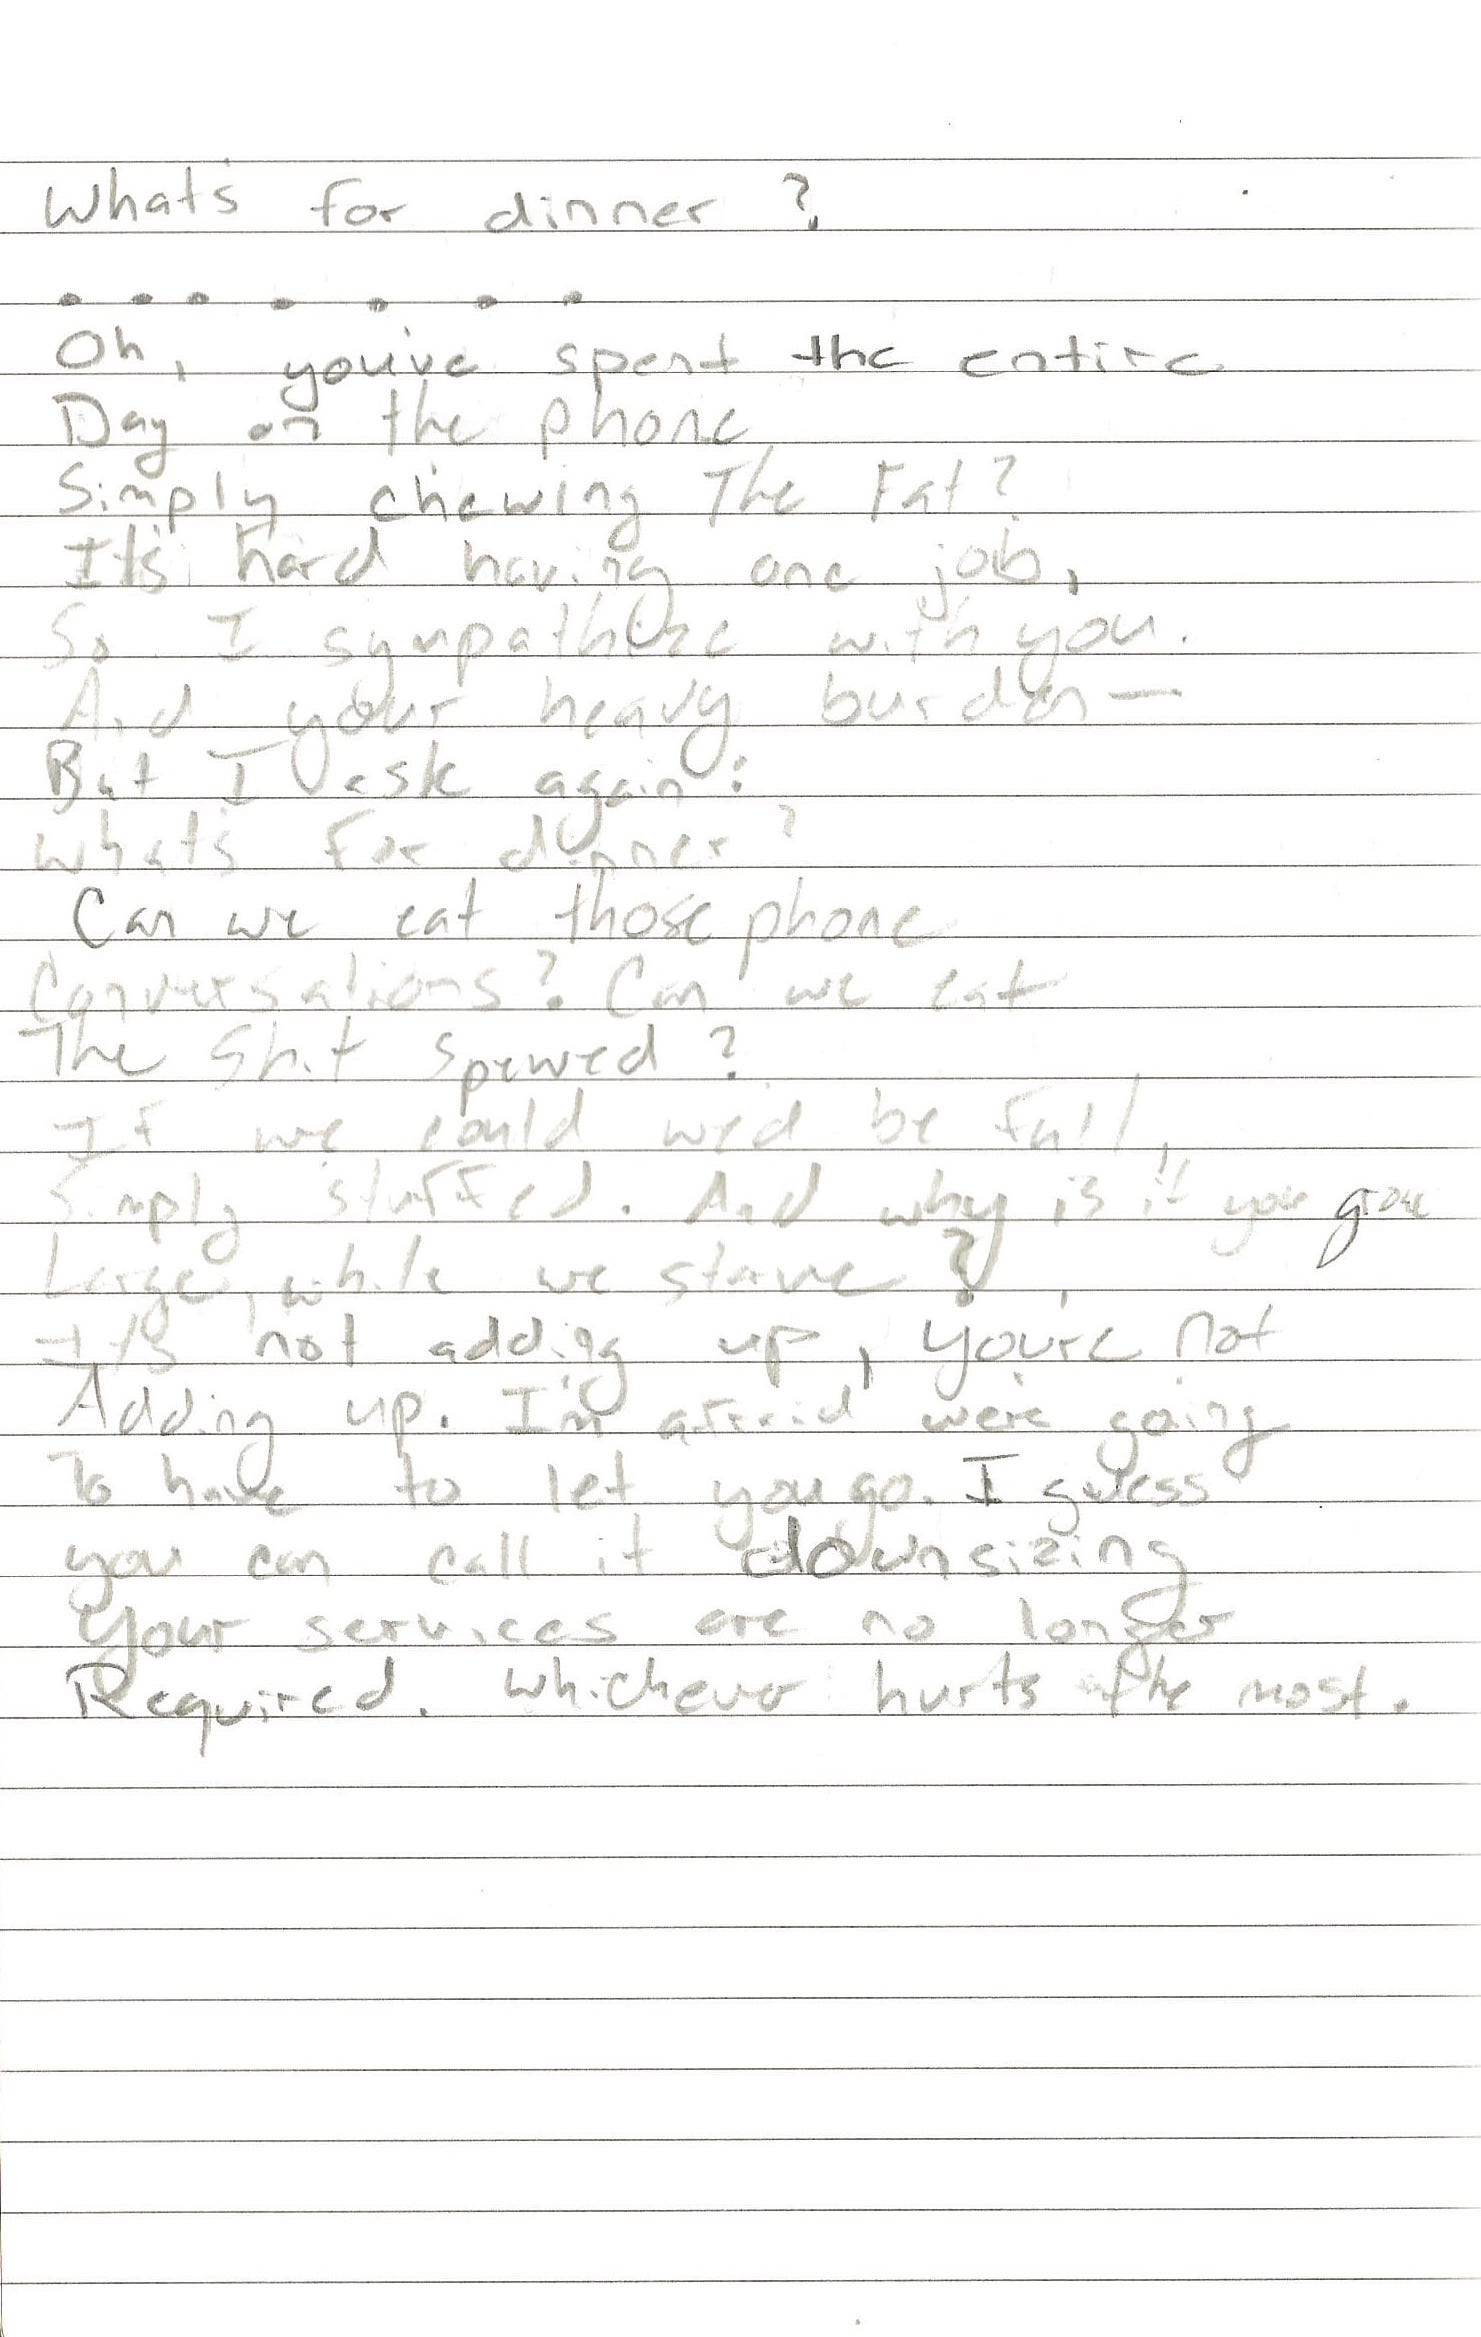 What's for dinner?
. . . . . . .
Oh, you've spent the entire
Day on the phone
Simply chewing The Fat?
It's hard having one job,
So I sympathize with you.
And your heavy burden—
But I ask again:
What's For dinner?
Can we eat those phone
Conversations? Can we eat
The Shit spewed?
If we could we'd be full,
Simply stuffed. And why is it you grow
Large, while we starve?
It's not adding up, you're not
Adding up. I'm afraid we're going
To have to let you go. I guess
you can call it downsizing
Your services are no longer
Required. Whichever hurts the most.